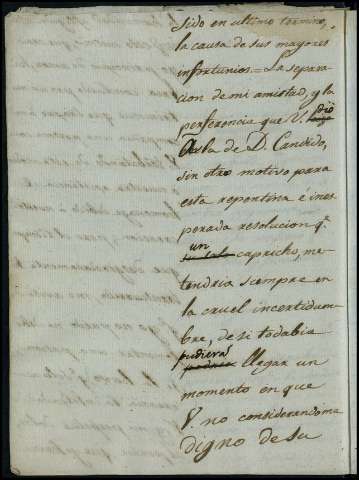 sido en ultimo termino,
la causa de sus mayores
infortunios. = La separa
cion de mi amistad, y la
perferencia que V. dió
a la de D. Candido,
sin otro motivo para
esta repentina é ines
perada resolucion q.e
un
capricho, me
tendria siempre en
la cruel incertidum
bre, de si todabia
pudiera
podria llegar un
momento en que
V. no considerandome
digno de su